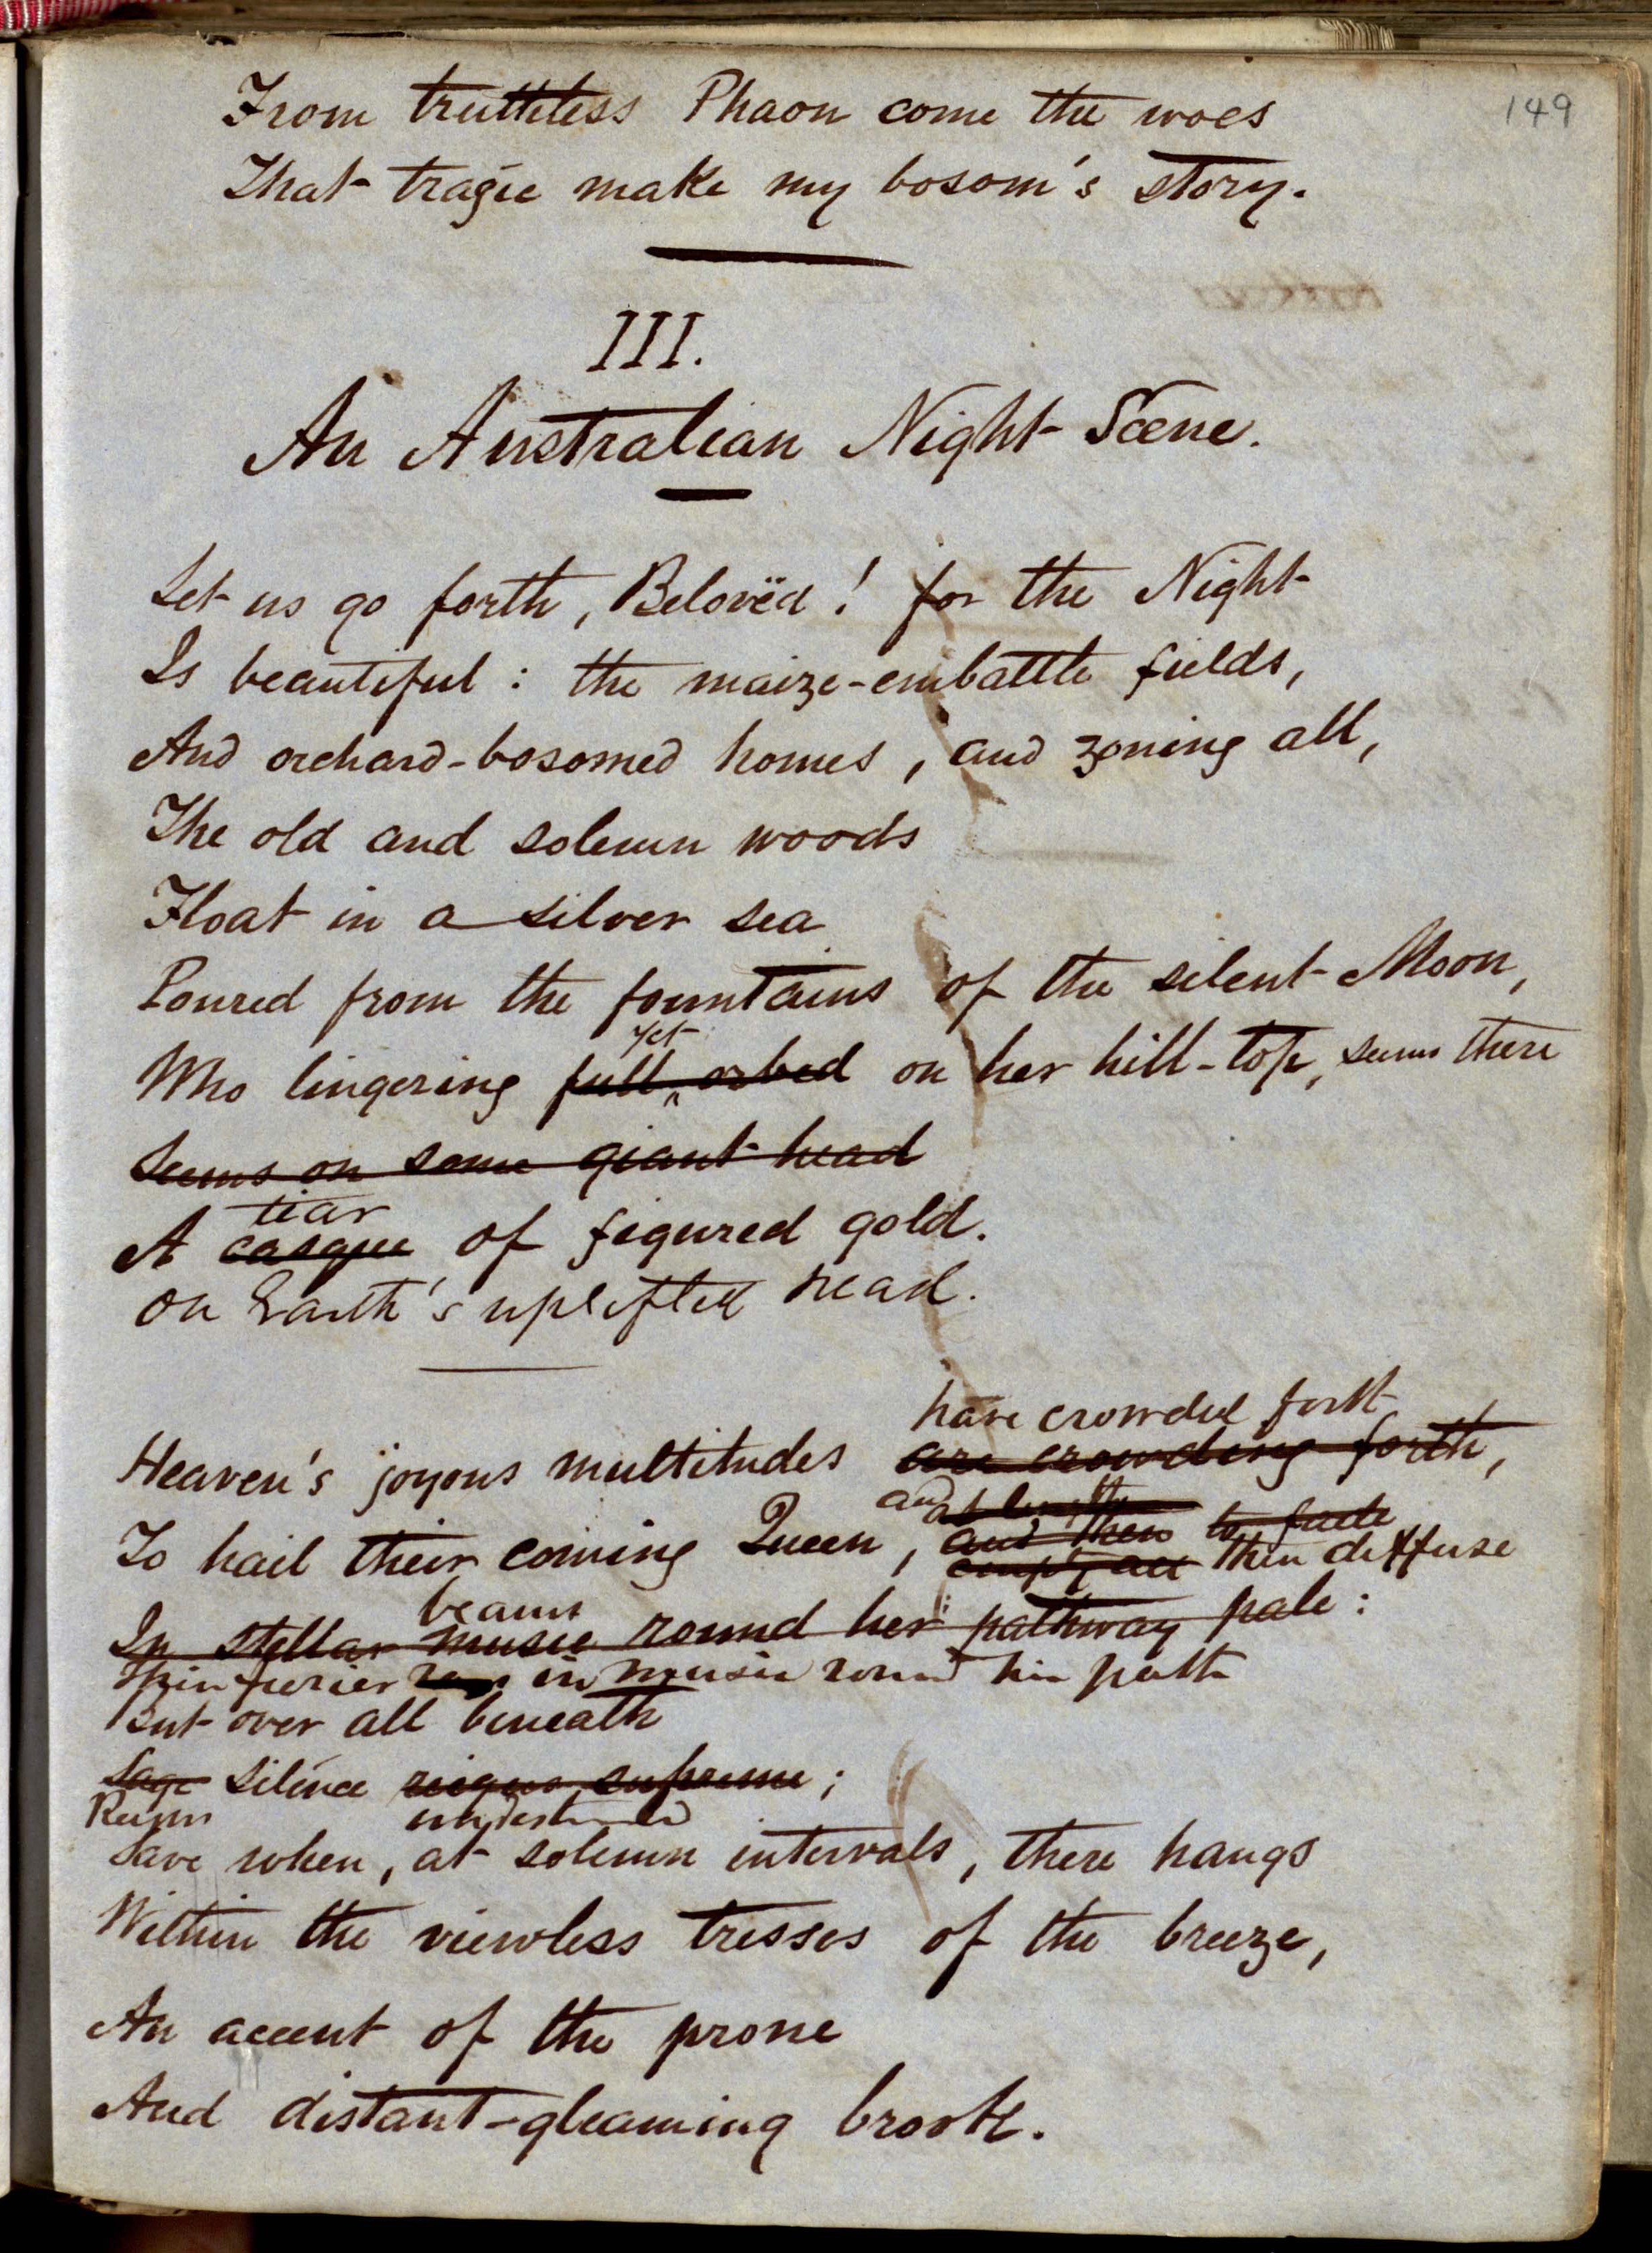 149
From truthless Phaon come the woes
That tragic make my bosom's story.
III.
An Australian Night Scene.
Let us go forth, Belovëd! for the Night
Is beautiful: the maize-embattle fields,
And orchard-bosomed homes, and zoning all,
The old and solemn woods
Float in a silver sea
Poured from the fountains of the silent Moon,
yet
Who lingering full orbed on her hill-top, seems there
Seems on some giant head
tiar
A casque of figured gold.
on Earth's uplifted head.
have crowded forth
Heaven's joyous multitudes are crowding forth,
and at length
and then to fade
To hail their coming Queen, then diffuse
beams
In stellar music round her pathway pale:
in music round path
But over all beneath
Sage silence reigns supreme;
Reigns undestined
Save when, at solemn intervals, there hangs
Within the viewless tresses of the breeze,
An accent of the prone
And distant-gleaming brook.